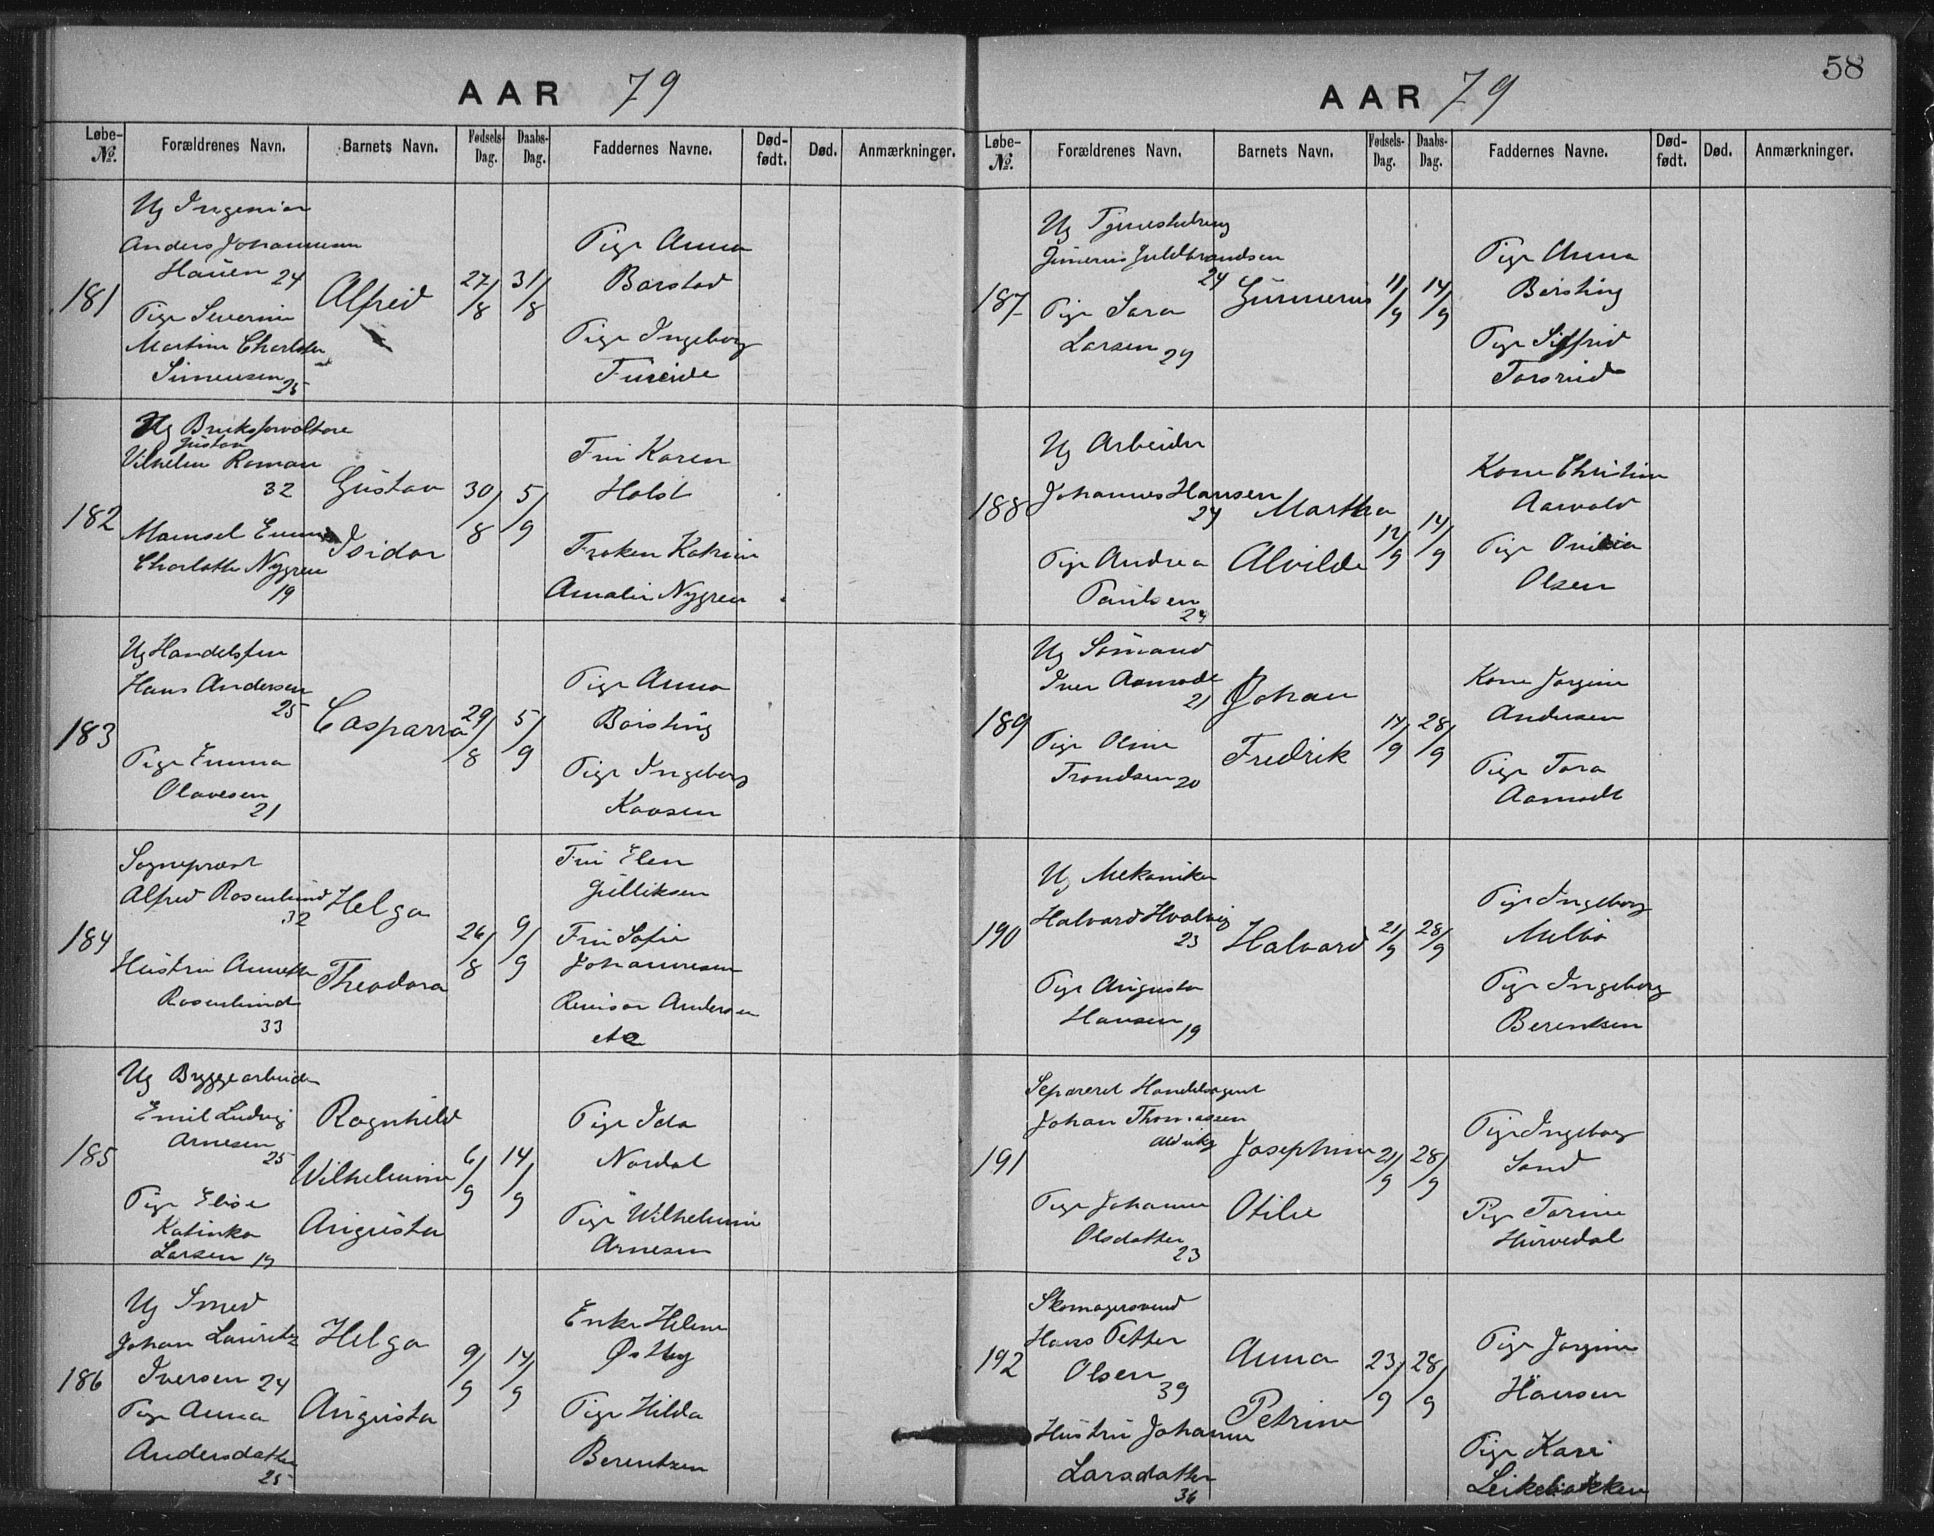 AAR 79
Løbe-№. Forældrenes Navn. Barnets Navn. Fødsels-Dag. Daabs-Dag. Faddernes Navne. Død-født. Død. Anmærkninger.
181
Ug Ingeniør
Anders Johannesen
Hauen 24
Pige Severine
Martine Charlotte
Simensen 25
Alfred
27/8
31/8
Pige Anna
Barstad
Pige Ingeborg
Fureide
182
Ug Bruksforvaltere
Gustav
Vilhelm Roman
32
Mamsel Emma
Charlotte Nygren
19
Gustav
Isidor
30/8
5/9
Fru Karen
Holst
Frøken Katrine
Amalie Nygren
183
Ug Handelsfm
Hans Andersen
25
Pige Emma
Olavesen
21
Casparra
29/8
5/9
Pige Anna
Børsting
Pige Ingeborg
Kaasen
184
Sogneprest
Alfred Rosenlund
32
Hustru Annette
Rosenlund
33
Helga
Theodora
26/8
9/9
Fru Elen
Gulliksen
Fru Sofie
Johannesen
Revisor Andersen
etc
185
Ug Bryggearbeider
Emil Ludvig
Arnesen
25
Pige Elise
Katinka
Larsen 19
Ragnhild
Wilhelmine
Augusta
6/9
14/9
Pige Ida
Nordal
Pige Wilhelmine
Arnesen
186
Ug Smed
Johan Lauritz
Iversen 24
Pige Anna
Andersdatter
25
Helga
Augusta
9/9
14/9
Enke Helene
Østby
Pige Hilda
Berentzen
58
AAR 79
Løbe-№. Forældrenes Navn. Barnets Navn. Fødsels-Dag. Daabs-Dag. Faddernes Navne. Død-født. Død. Anmærkninger.
187
Ug Tjenestedreng
Gunerius Guldbrandsen
24
Pige Sara
Larsen 29
Gunnerius
11/9
14/9
Pige Anna
Børsting
Pige Siffrid
Torsrud
188
Ug Arbeider
Johannes Hansen
24
Pige Andrea
Paulsen
24
Martha
Alvilde
12/9
14/9
Kone Christine
Aarvold
Pige
Olsen
189
Ug Sømand
Iver Aamodt
21
Pige Oline
Trondsen 20
Johan
Fredrik
14/9
28/9
Kone Jørgine
Andersen
Pige Tora
Aamodt
190
Ug Mekaniker
Halvard Hvalvig
23
Pige Augusta
Hansen 19
Halvard
21/9
28/9
Pige Ingeborg
Melbø
Pige Ingeborg
Berentsen
191
Separeret Handelsagent
Johan Thomassen
Pige Johanne
Olsdatter
23
Josephine
Otilie
21/9
28/9
Pige Ingeborg
Sand
Pige Torine
Hurvedal
192
Skomagersvend
Hans Petter
Olsen
39
Hustru Johanne
Larsdatter
36
Anna
Petrine
23/9
28/9
Pige Jørgine
Hansen
Pige Kari
Leikebakken